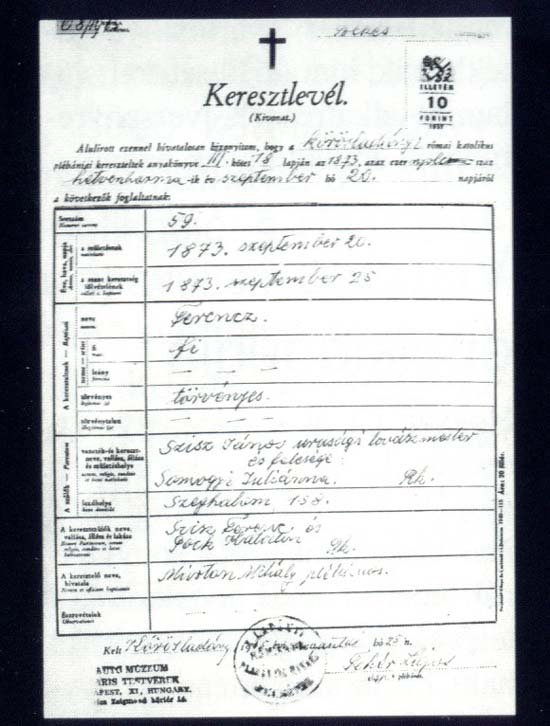 ILLETÉK
10
FORINT
1957
Keresztlevél.
(Kivonat.)
Alulirott ezennel hivatalosan bizonyítom, hogy a Körösladányi római katolikus
plébániai kereszteltek anyakönyve III. kötet 18 lapján az 1873, azaz ezer nyolc száz
hetvenharma ik év szeptember hó 20. napjáról
a következők foglaltatnak:
Sorszám
59.
a születésnek
1873. szeptember 20.
a szent keresztség
1873. szeptember 25
neve
Ferencz.
fi
fi
leány
— — —
törvényes
törvényes.
törvénytelen
— — —
A szülők — Parentum
vezeték- és kereszt-
neve, vallása, állása
és születéshelye
Szisz János urasági lovászmester
és felesége
Somogyi Julianna. Rk.
lakhelye
Szeghalom 158.
A keresztszülők neve,
vallása, állása és lakása
Szisz Ferenc és
Katalin Rk.
A keresztelő neve,
hivatala
Mihály plébános.
Észrevételek
Kelt Körösladány hó 25 n.
Fehér Lajos
plébános
AUTO MÚZEUM
ARIS TESTVÉREK
APEST, XI, HUNGARY.